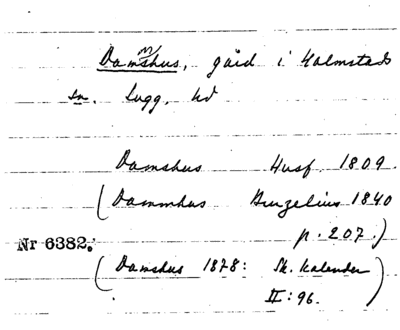 Damshus, gård i Halmstads
sn. Lugg. hd
Damshus Husf. 1809.
(Dammhus Bruzelius 1840
p. 207.)
Nr 6382.
(Damshus 1878: Sk. Kalender
II: 96.)